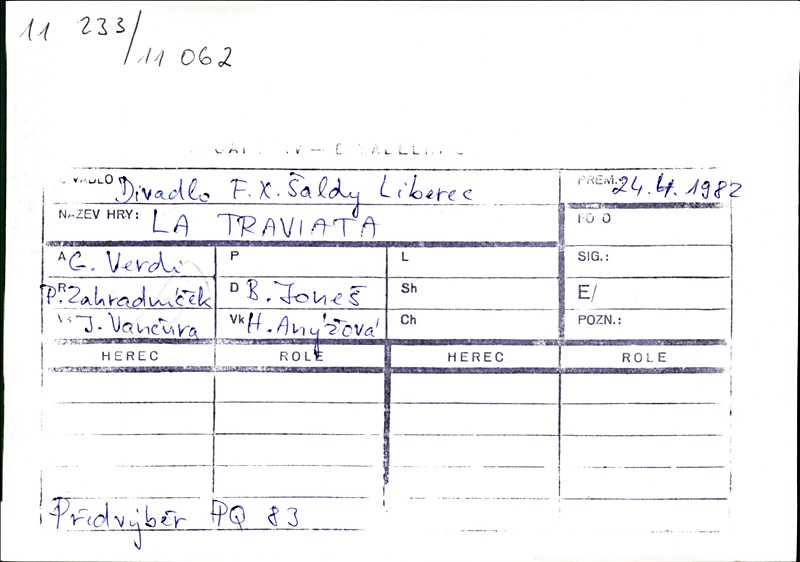 11 233/
11 062
DIVADLO Divadlo F. X. Šaldy Liberec PREM.: 24. 4. 1982
NÁZEV HRY: LA TRAVIATA FOTO
A G. Verdi P L SIG.:
R P. Zahradníček D B. Joneš Sh E/
Vs J. Vančura Vk H. Anýžová Ch POZN.:
HEREC ROLE HEREC ROLE
Předvýběr PQ 83